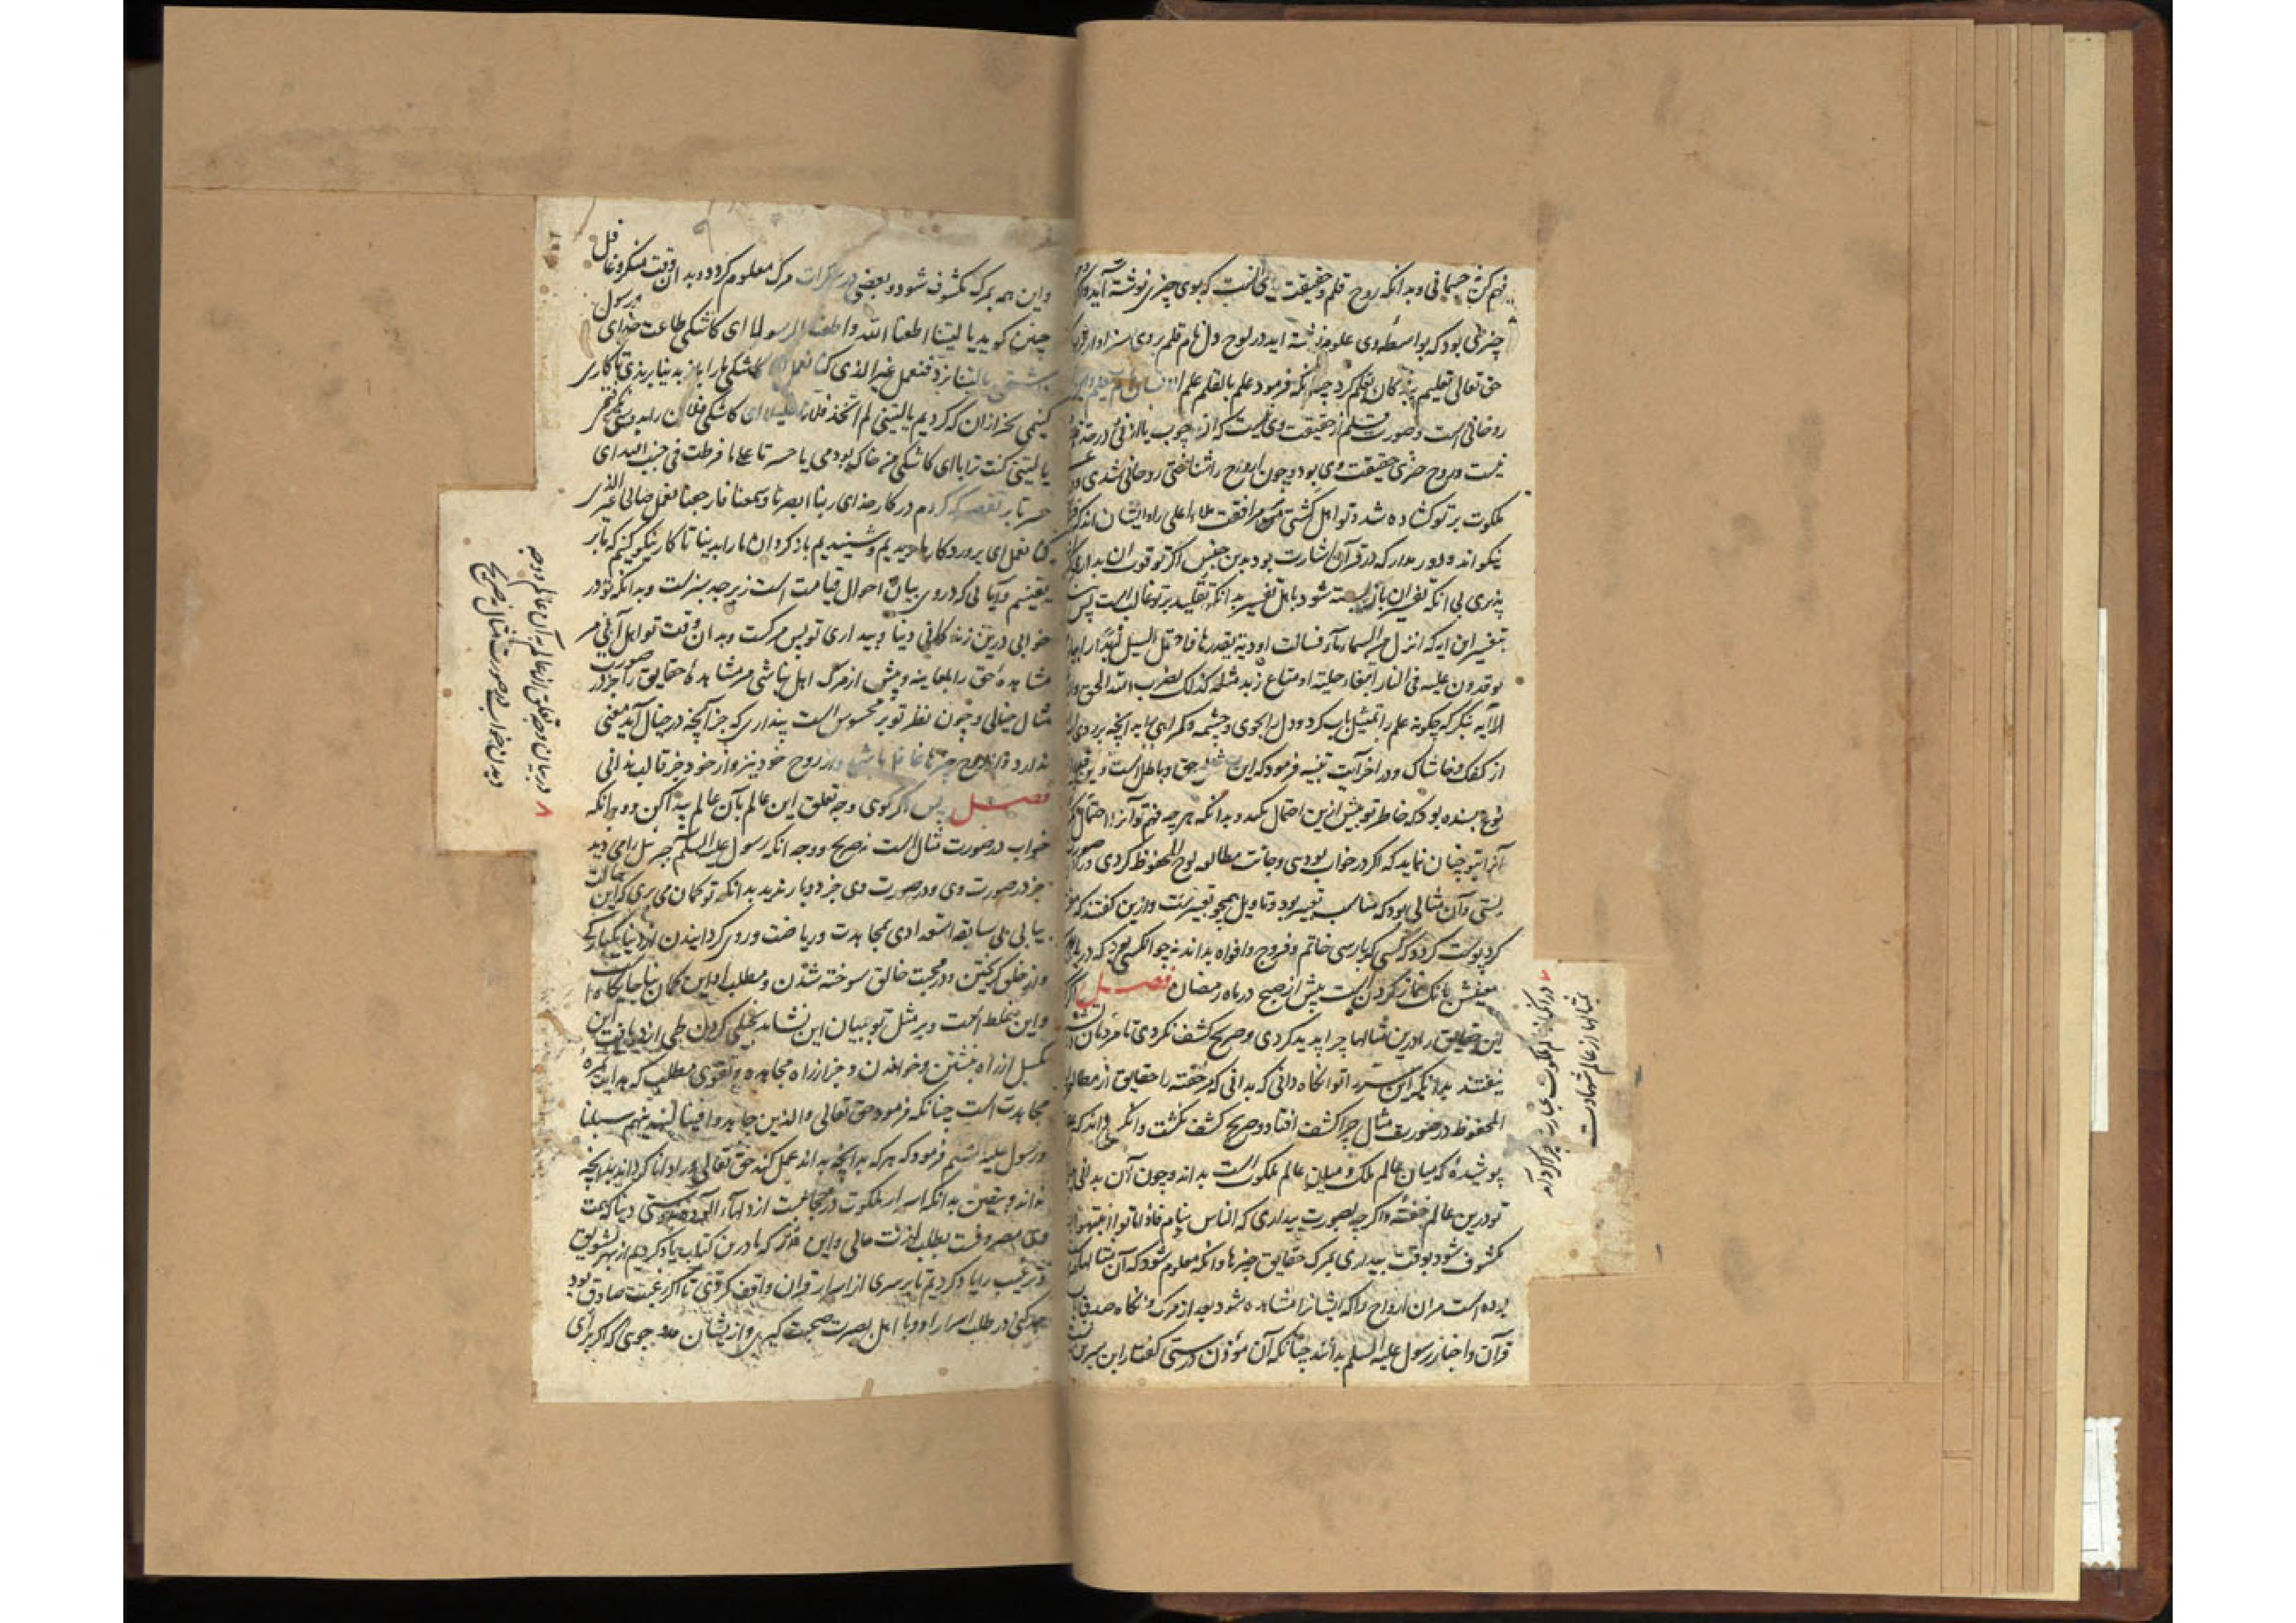 فهم کن نه جسمانی و بدانکه روح قلم و حقیقت وی آنست که بوی چیزی نوشته آید و اگر
چیزی بود که بواسطهٔ وی علوم نوشته اید در لوح دل نام قلم بر وی سزاوارتر
حق تعالی تعلیم بندگان بقلم کرد چنانکه فرمود علم بالقلم علم الانسان ما لم یعلم و این
روحانی است و صورت قلم از حقیقت وی نیست که از چوب یا از نی در حد
نیست و روح هر چیزی حقیقت وی بود و چون ارواح را شناختی روحانی شدی و در
ملکوت بر تو گشاده شد و تو اهل گشتی مر مرافقت ملاء اعلی را و ایشان اند که
نیکو اند و دور مدار که در قرآن اشارت بود بدین جنس اگر تو قوت ان نداری که
پذیری بی انکه تفسیر ان باز بسته شود باهل تفسیر بدانکه تقلید بر تو غالب است پس
بتفسیر این ایه که انزل من السماء ماء فسالت اودیة بقدرها فاحتمل السیل زبدا رابیا
یوقدون علیه فی النار ابتغاء حلیة او متاع زبد مثله کذلک یضرب الله الحق و
الآیه بنگر که چگونه علم را تمثیل باب کرد و دل را بجوی و چشمه و گمراهی را به انچه بر روی
از کفک و خاشاک و در اخر آیت تنبیه فرمود که این مثل حق و باطل است و این قدر
نوع بسنده بود که خاطر تو بیش ازین احتمال نکند و بدانکه هر چه فهم تو آنرا احتمال
آنرا بتو چنان نماید که اگر در خواب بودی و جانت مطالعه لوح المحفوظ کردی در صورت
بستی و آن مثالی بود که مناسب تعبیر بود و تاویل همچو تعبیرست و ازین گفتند که
گرد پوست گردد که کسی که بارسی خاتم و فروج و افواه بداند نه چو انکسی بود که دریابد
معنیش بانک نماز کردن است پیش از صبح در ماه رمضان فصل اگر
این حقایق را درین مثالها چرا پدید کردی و صریح کشف نکردی تا مردمان
نیفتند بدانکه این سر را تو انگاه دانی که بدانی که خفته را حقایق از مطالعه
المحفوظ در صورت مثال چرا کشف افتاد و صریح کشف نگشت و انگه
پوشیده که میان عالم ملک و میان عالم ملکوت است بداند و چون آن بدانی
تو درین عالم خفته و اگر چه بصورت بیداری که الناس نیام فاذا ماتوا انتبهوا
مکشوف شود بوقت بیداری بمرگ حقایق چیزها و انگه معلوم شود که آن مثالها
بوده است مر ان ارواح را که ایشانرا مشاهده شود بعد از مرگ و انگاه صدق
قرآن و اخبار رسول علیه السلم بدانند چنانکه آن مؤذن درستی گفتار ابن سیرین
در انکه از عالم ملکوت عبارت چرا کردند
بمثالها از عالم شهادت
و این همه بمرگ مکشوف شود و بعضی در سکرات مرگ معلوم گردد و بدان وقت منکر و غافل
چنین گوید یا لیتنا اطعنا الله و اطعنا الرسولا ای کاشکی طاعت خدای و رسول
داشتمی یا لیتنا نرد فنعمل غیر الذی کنا نعمل ای کاشکی ما را باز بدنیا برندی تا کاری
کنیمی بجز ازان که کردیم یا لیتنی لم اتخذ فلانا خلیلا ای کاشکی فلان را بدوستی نگرفتمی
یا لیتنی کنت ترابا ای کاشکی من خاک بودمی یا حسرتا علی ما فرطت فی جنب الله ای
حسرتا بر تقصیر که کردم در کار خدای ربنا ابصرنا و سمعنا فارجعنا نعمل صالحا غیر الذی
کنا نعمل ای پروردگار ما دیدیم و شنیدیم باز گردان ما را بدینا تا کار نیکو کنیم که ما بر
یقینیم و آیاتی که در وی بیان احوال قیامت است زبرجد سبزست و بدانکه تو در
خوابی درین زندگانی دینا و بیداری تو پس مرگست و بدان وقت تو اهل آیی مر
مشاهدهٔ حق را بمعاینه و پیش از مرگ اهل نباشی مر مشاهدهٔ حقایق را جز در صورت
مثال خیالی و چون نظر تو بر محسوس است پنداری که جز آنچه در خیال آید معنی
ندارد و از روح چیزها غافل باشی و از روح خود نیز و از خود جز قالب ندانی
فصل پس اگر گوی وجه تعلق این عالم بآن عالم پیدا کن و وجه انکه
خواب در صورت مثال است نه صریح و وجه انکه رسول علیه السلم جبرئیل را می دید
جز در صورت وی و در صورت وی جز دو بار ندید بدانکه تو گمان می بری که این
بیابی بی سابقهٔ استعدادی بمجاهدت و ریاضت و روی گردانیدن از دنیا بیکبارگی
و از خلق گریختن و در محبت خالق سوخته شدن و مطلب این گمان
و این غلط است و بر مثل تو بیان این نشاید
بگسل از راه نبشتن و خواندن و جز از راه مجاهده و تقوی مطلب که هدایت ثمرهٔ
مجاهدت است چنانکه فرمود حق تعالی والذین جاهدوا فینا لنهدینهم سبلنا
و رسول علیه السلم فرمود که هر که بدانچه بداند عمل کند حق تعالی ورا دانا گرداند بدانچه
نداند و بیقین بدانکه اسرار ملکوت در حجابست از دلهاء آلوده بدوستی دینا که همت
وی مصروفست بطلب لذت حالی و این قدر که ما درین کتاب یاد کردیم از بهر تشویق
و ترغیب را یاد کردیم تا بر سری از اسرار قران واقف گردی تا اگر رغبت صادق بود
جد کنی در طلب اسرار او و با اهل بصیرت صحبت گیری و ازیشان مدد جوی که اگر برأی
در بیان وجه تعلق این عالم به آن عالم و وجه
دیدن خواب در صورت مثال نه صریح